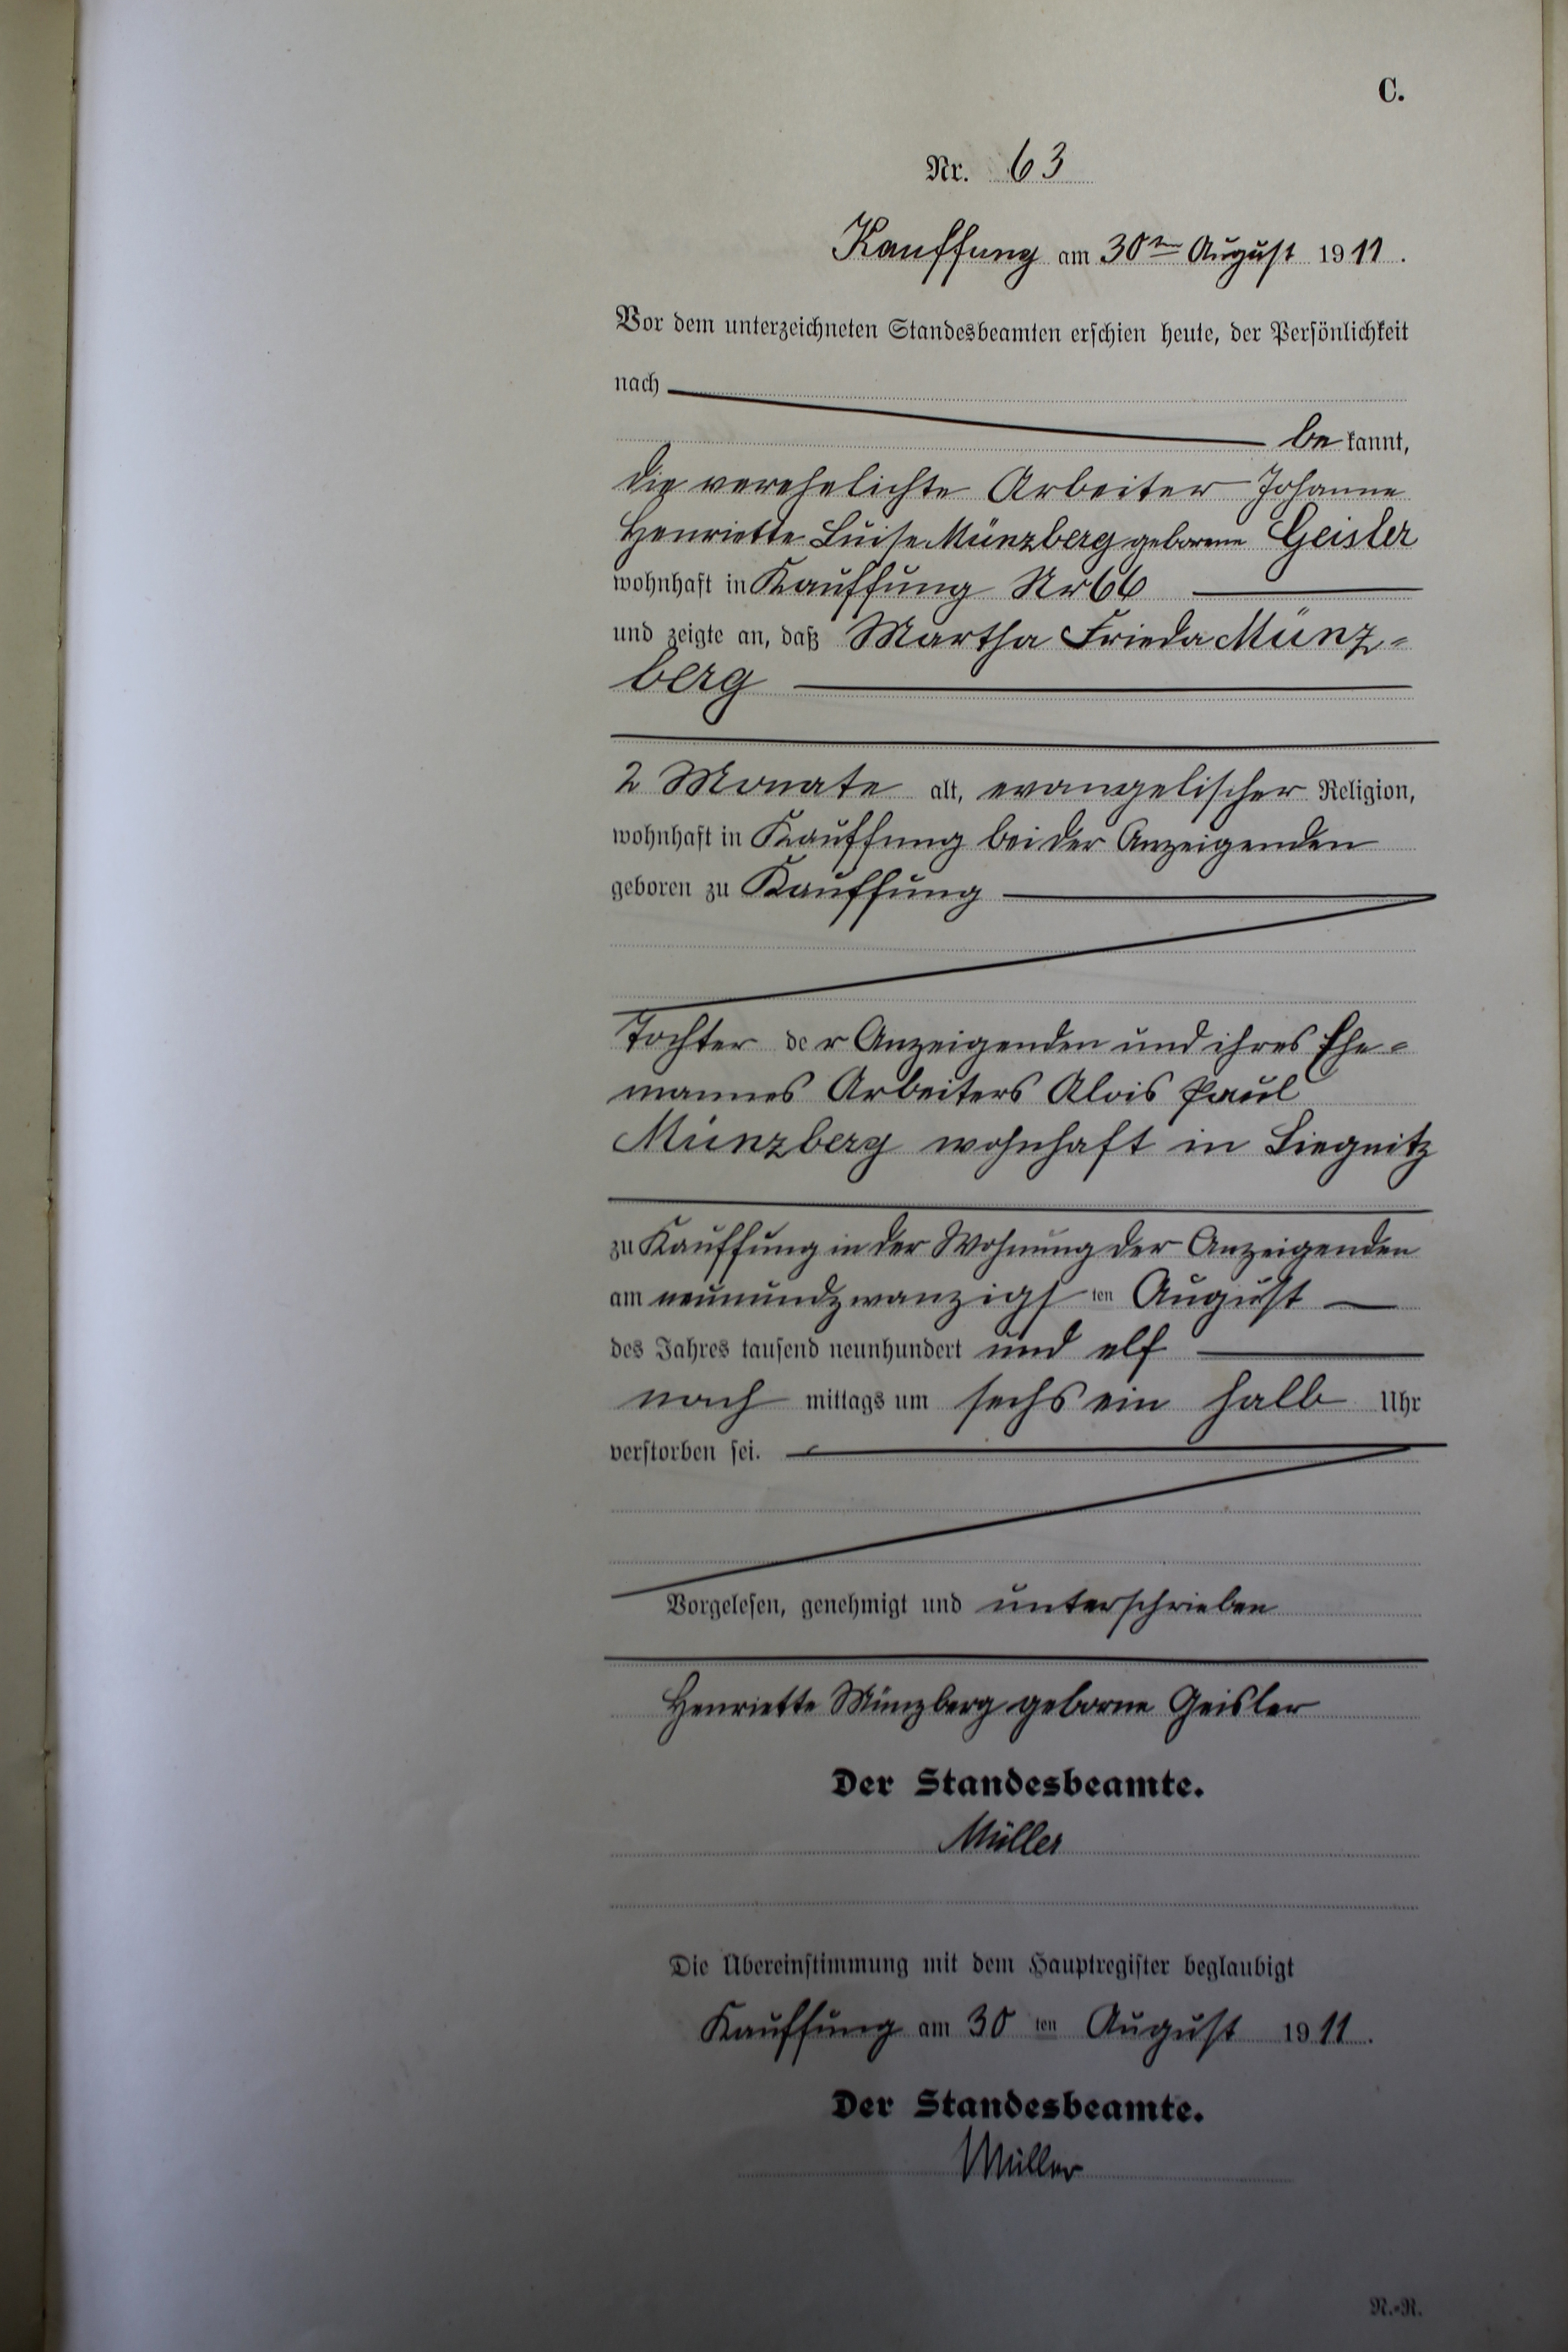 C.
Nr. 63
Kauffung am 30ten August 1911.
Vor dem unterzeichneten Standesbeamten erschien heute, der Persönlichkeit
nach
bekannt,
die verehelichte Arbeiter Johanne
Henriette Luise Münzberg geborene Geisler
wohnhaft in Kauffung Nr 66
und zeigte an, daß Martha Frieda Münz-
berg
2 Monate alt, evangelischer Religion,
wohnhaft in Kauffung bei der Anzeigenden
geboren zu Kauffung
Tochter der Anzeigenden und ihres Ehe-
mannes Arbeiters Alois Paul
Münzberg wohnhaft in Liegnitz
zu Kauffung in der Wohnung der Anzeigenden
am neunundzwanzigsten August
des Jahres tausend neunhundert und elf
nachmittags um sechs ein halb Uhr
verstorben sei.
Vorgelesen, genehmigt und unterschrieben
Henriette Münzberg geborne Geisler
Der Standesbeamte.
Müller
Die Übereinstimmung mit dem Hauptregister beglaubigt
Kauffung am 30ten August 1911.
Der Standesbeamte.
Müller
N.-N.